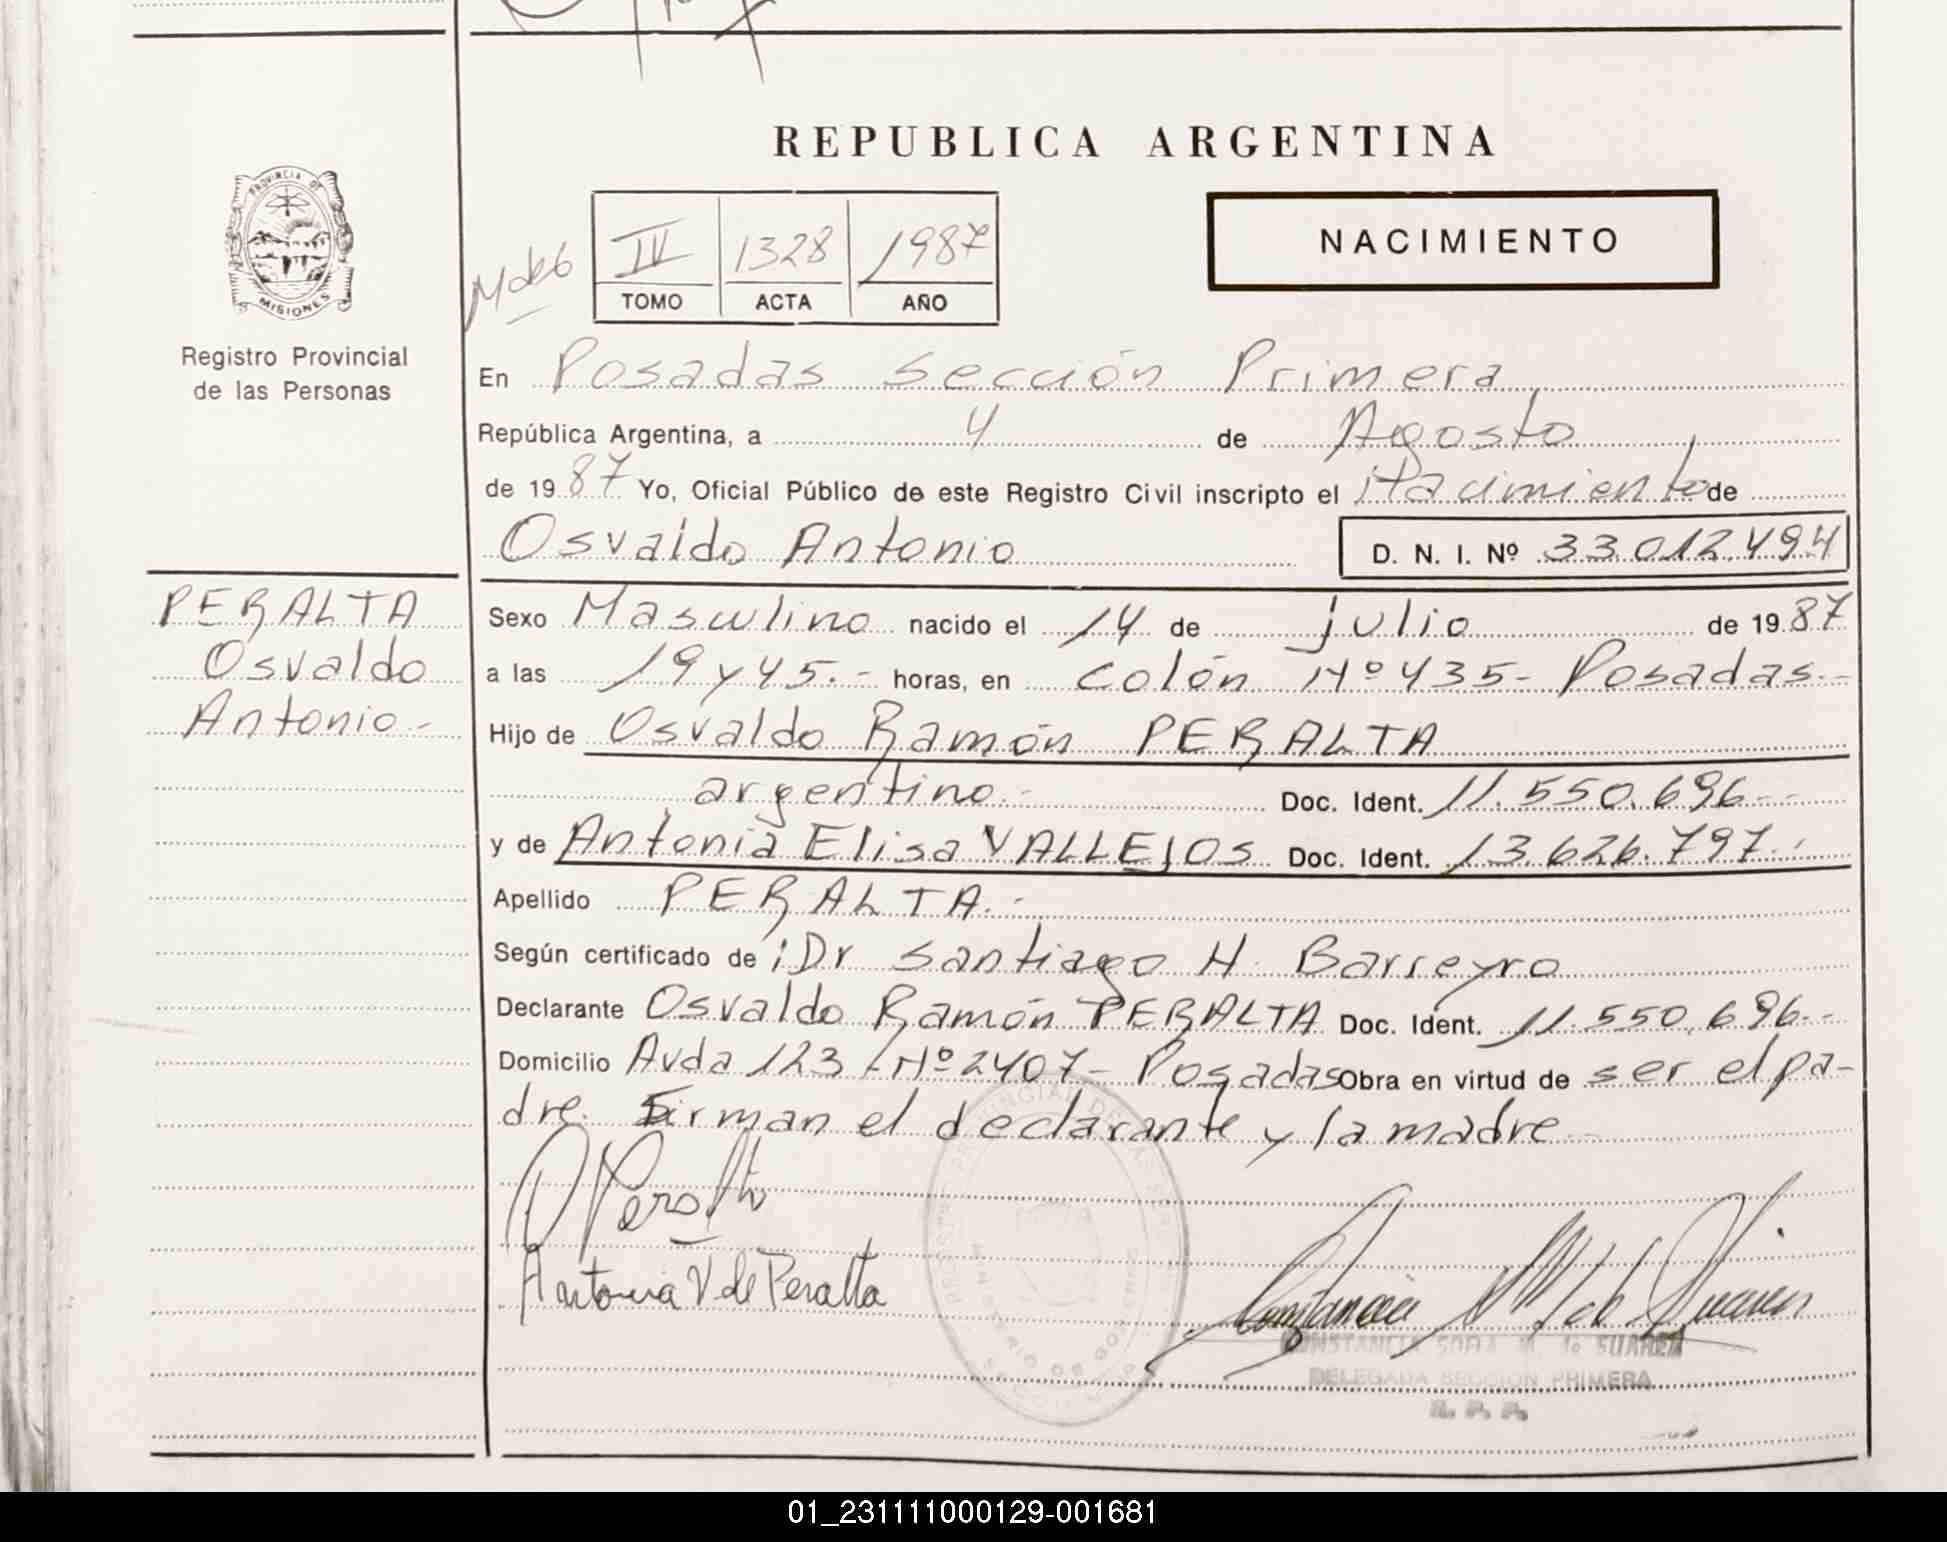 REPUBLICA ARGENTINA
PROVINCIA DE
MISIONES
Registro Provincial
de las Personas
IV 1328 1987
TOMO ACTA AÑO
NACIMIENTO
En Posadas Sección Primera
República Argentina, a 4 de Agosto
de 1987 Yo, Oficial Público de este Registro Civil inscripto el Nacimiento de
Osvaldo Antonio D. N. I. Nº 33.012.494
PERALTA
Osvaldo
Antonio.-
Sexo Masculino nacido el 14 de julio de 1987
a las 19 y 45.- horas, en Colón Nº 435- Posadas.-
Hijo de Osvaldo Ramón PERALTA
argentino.- Doc. Ident. 11.550.696--
y de Antonia Elisa VALLEJOS Doc. Ident. 13.626.797.-
Apellido PERALTA.-
Según certificado de : Dr Santiago H. Barreyro
Declarante Osvaldo Ramón PERALTA Doc. Ident. 11.550.696.-
Domicilio Avda 123 - Nº 2407- Posadas Obra en virtud de ser el pa-
dre. Firman el declarante y la madre-
O Peralta
Antonia V de Peralta
CONSTANCIA SOFIA M. de SUAREZ
DELEGADA SECCION PRIMERA
R. P. P.
01_231111000129-001681